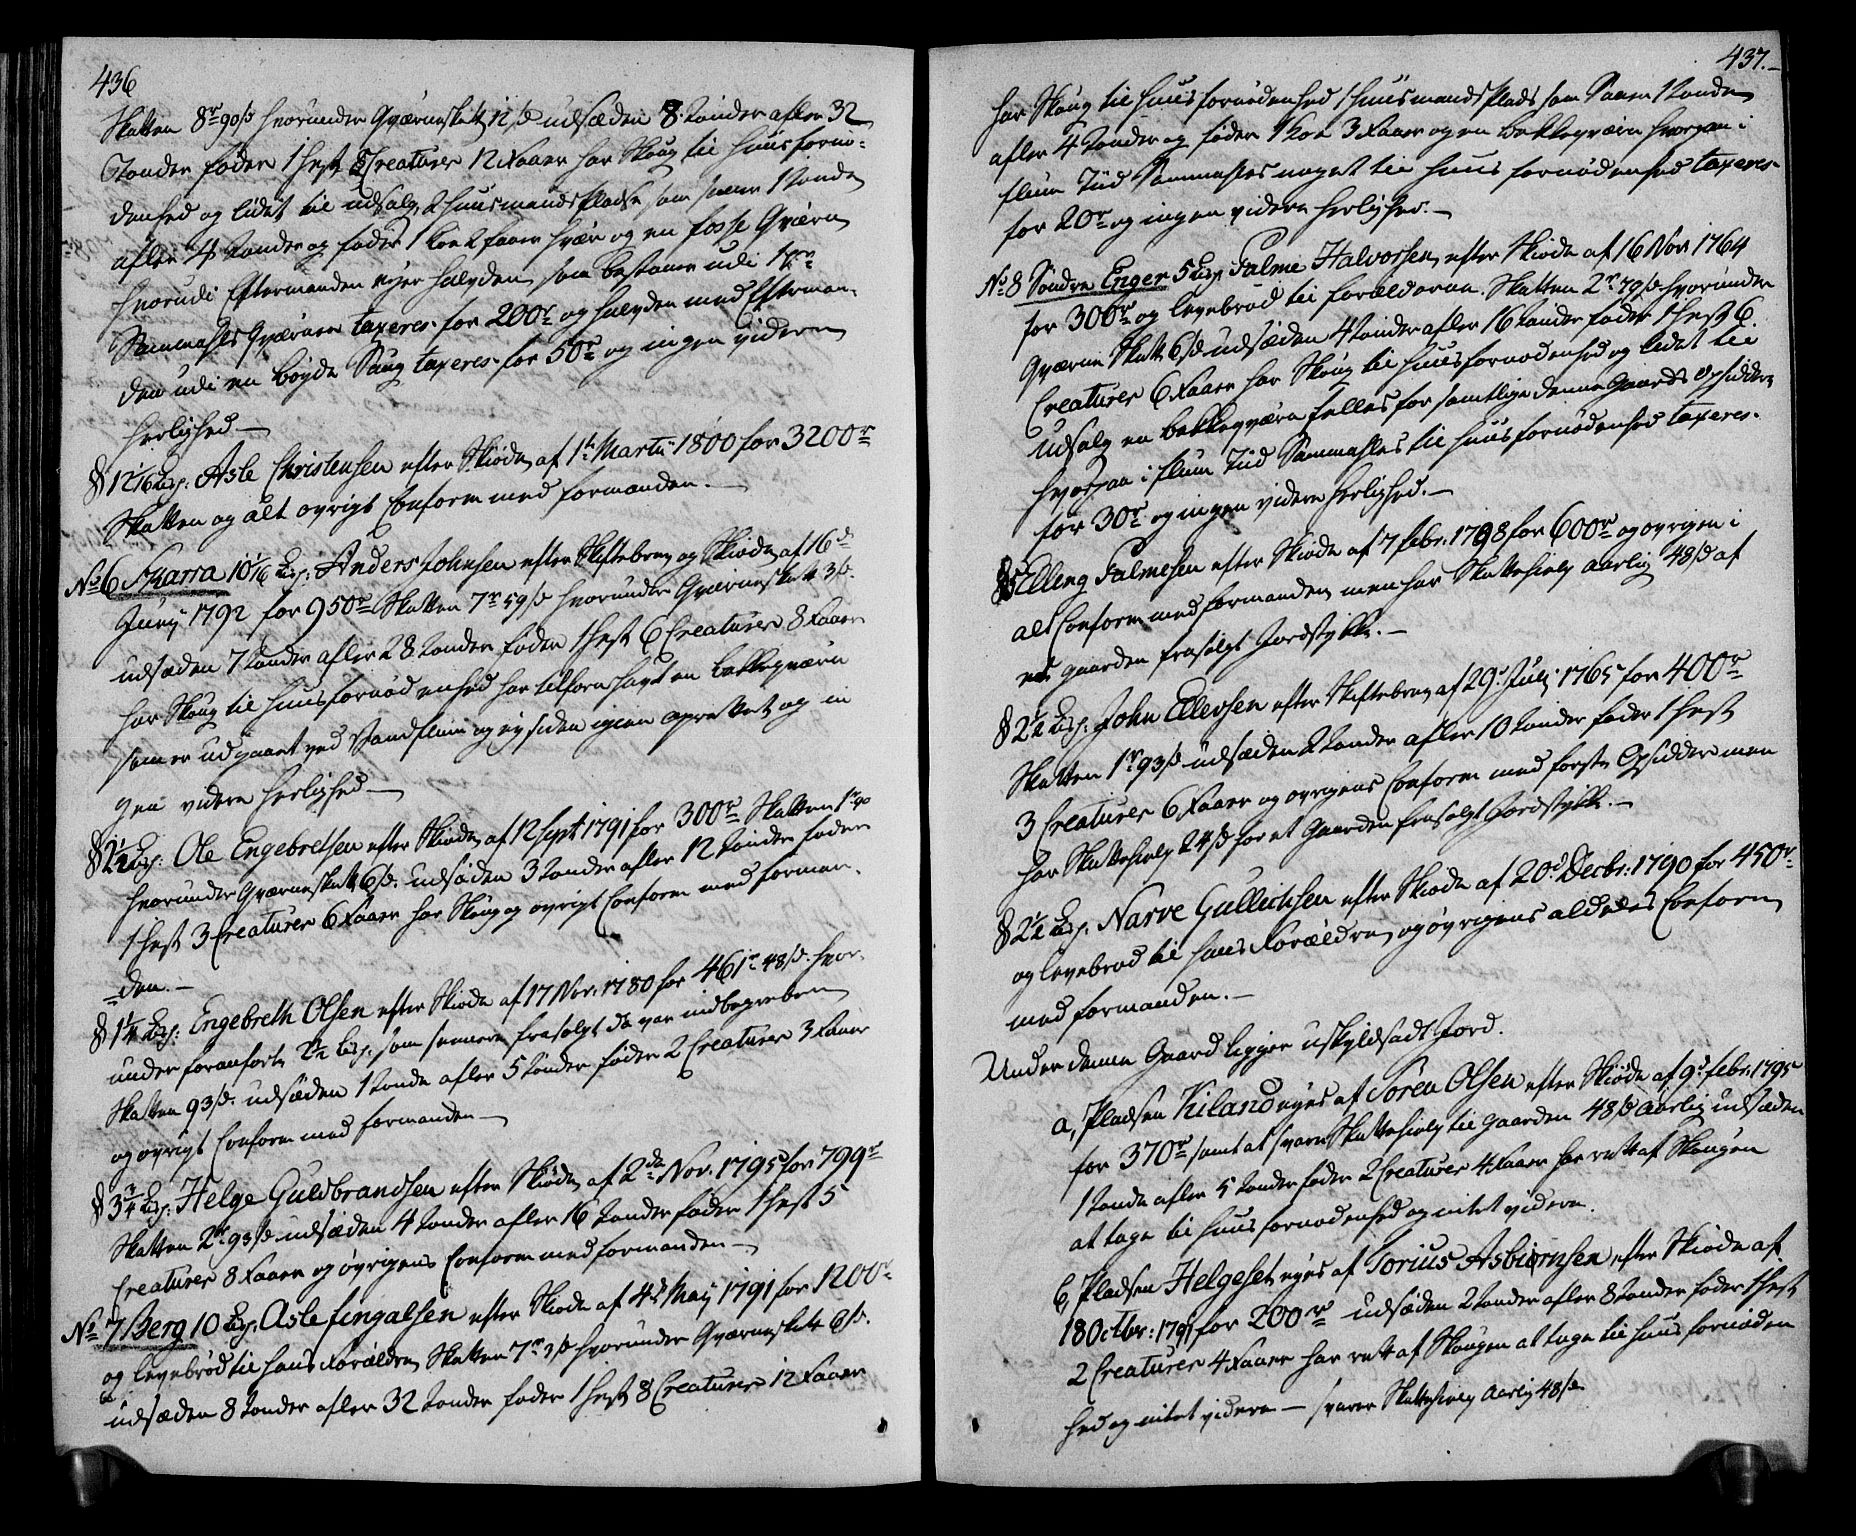 436
Skatten 8r 90/s hvorunder Qværneskatt 12/s udsæden 8 tønder afler 32
Tønder føder 1 Hest 8 Creaturer 12 Faaer har Skoug til Huusfornø-
denhed og lidet til udsalg, 2 Huusmandspladse som saaer 1 Tønde
afler 4 Tønder og føder 1 Koe 2 faaer hvær og en fosse Qværn
hvorudi Eftermanden eyer halvden, som bestaaer udi
Sammahls Qværnen taxeres for 200r og halvden med Efterman-
den udi en bøyde Saug taxeres for 50r og ingen videre
herlighed. —
§ 12 1/6 Lisp: Asle Christensen efter Skiøde af 1te Martii 1800 for 3200r
Skatten og alt øvrigt Conform med formanden. —
No 6 Skarra 10 1/6 Lisp: Anders Johnsen efter Skiftebrev og Skiøde af 16d
Junij 1792 for 950r Skatten 7r 59/s hvorunder Qværneskatt 3/s.
udsæden 7 Tønder afler 28 Tønder føder 1 Hest 6 Creaturer 8 Faaer
har Skoug til Huusfornødenhed har tilforn havt en bekkeqværn
som er udgaaet ved Vandfluum og ey siden igien oprettet og in
gen videre herlighed —
§ 2 1/2 Lisp: Ole Engebretsen efter Skiøde af 12 Sept 1791 for 300r Skatten 1r 90
hvorunder Qværneskatt 6/s. udsæden 3 Tønder afler 12 Tønder føder
1 Hest 3 Creaturer 6 Faaer har Skoug og øvrigt Conform med forman-
den. —
§ 1 1/4 Lisp: Engebreth Olsen efter Skiøde af 17 Nov: 1780 for 461r 48/s. hvor-
under foranførte 2 1/2 Lisp: som sennere frasolgt da var indbegreben
Skatten 93/s. udsæden 1 Tønde afler 5 Tønder føder 2 Creaturer 3 Faaer
og øvrigt Conform med formanden —
§ 3 3/4 Lisp: Helge Guldbrandsen efter Skiøde af 2de Nov: 1795 for 799r
Skatten 2r 93/s udsæden 4 Tønder afler 16 Tønder føder 1 Hest 5
Creaturer 8 Faaer og øvrigens Conform med formanden —
No 7 Berg 10 Lisp: Asle fingalsen efter Skiøde af 4de Maij 1791 for 1200r
og levebrød til hans Forældre, Skatten 7r 3/s hvorunder Qværneskatt 6/s.
udsæden 8 Tønder afler 32 Tønder føder 1 Hest 8 Creaturer 12 Faaer
437. —
har Skoug til Huusfornødenhed 1 Huusmandsplads som Saaer 1 Tønde
afler 4 Tønder og føder 1 Koe 3 Faaer og en bekkeqværn hvorpaa i
fluum Tiid Sammahles noget til Huus fornødenhed taxeres
for 20r og ingen videre herlighed. —
No 8 Søndre Enger 5 Lisp: Palme Halvorsen, efter Skiøde af 16 Nov 1764
for 300r og levebrød til forældrene. Skatten 2r 79/s hvorunder
Qværne Skatt 6/s udsæden 4 Tønder afler 16 Tønder føder 1 Hest 6
Creaturer 6 Faaer har Skoug til Huusfornødenhed og lidet til
udsalg en bekkeqværn felles for samtlige denne Gaards Opsiddere
hvorpaa i fluum Tiid Sammahles til Huusfornødenhed taxeres
for 30r og ingen videre herlighed. —
§ 5 Elleng Palmesen efter Skiøde af 7 febr: 1798 for 600r og øvrigen i
alt Conform med formanden men har Skattehielp aarlig 48/s af
et gaarden frasolgt Jordstykke. —
§ 2 1/2 Lisp: John Ellevsen efter Skiftebrev af 29d Julij 1765 for 400r
Skatten 1r 93/s udsæden 2 Tønder afler 10 Tønder føder 1 Hest
3 Creaturer 6 Faaer og øvrigens Conform med første Opsidder men
har Skattehielp 24/s for et Gaarden frasolgt Jordstykke. —
§ 2 1/2 Lisp: Narve Gullichsen efter Skiøde af 20d Decbr: 1790 for 450r
og levebrød til hans Forældre, og øvrigens aldeles Conform
med formanden. —
Under denne Gaard ligger uskyldsadt Jord.
a, Pladsen Kiland eyes af Søren Olsen efter Skiøde af 9d febr: 1795
for 370r samt at svare Skattehielp til gaarden 48/s aarlig udsæden
1 Tønde afler 5 Tønder føder 2 Creaturer 4 Faaer har rett af Skougen
at tage til Huusfornødenhed og intet videre.
b, Pladsen Helgeset, eyes af Torius Asbiørnsen, efter Skiøde af
18 Octbr: 1791 for 200r udsæden 2 Tønder afler 8 Tønder føder 1 Hest
2 Creaturer 4 Faaer har rett af Skougen at tage til Huusfornøden
hed og intet videre — svarer Skattehielp Aarlig 48/s